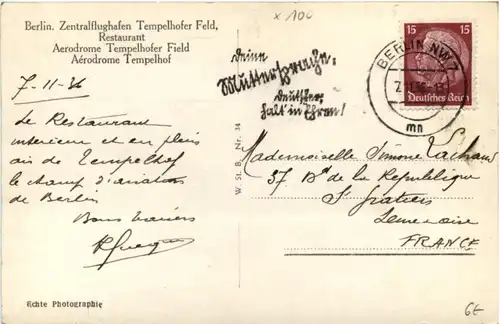 × 100
Berlin. Zentralflughafen Tempelhofer Feld,
Restaurant
Aerodrome Tempelhofer Field
Aérodrome Tempelhof
7-11-36
Le Restaurant
intérieur et en plein
air de Tempelhof
le champ d'aviation
de Berlin
Bons baisers
Echte Photographie
W. St. B. Nr. 34
Deine
Muttersprache,
Deutscher
halt' in Ehren!
BERLIN NW 7
mn
15 15
Deutsches Reich
Mademoiselle Simone
37 Bd de la République
St Gratien
Seine et oise
FRANCE
6€